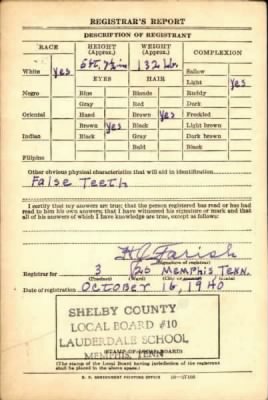 REGISTRAR'S REPORT
DESCRIPTION OF REGISTRANT
RACE HEIGHT (Approx.) WEIGHT (Approx.) COMPLEXION
5ft. 7½in 132 lb.
White Yes Sallow
EYES HAIR Light Yes
Negro Blue Blonde Ruddy
Gray Red Dark
Oriental Hazel Brown Yes Freckled
Brown Yes Black Light brown
Indian Black Gray Dark brown
Bald Black
Filipino
Other obvious physical characteristics that will aid in identification
False Teeth
I certify that my answers are true; that the person registered has read or has had
read to him his own answers; that I have witnessed his signature or mark and that
all of his answers of which I have knowledge are true, except as follows:
Farish
(Signature of registrar)
Registrar for 3 25 Memphis Tenn.
(Precinct) (Ward) (City or county) (State)
Date of registration October 16, 1940
SHELBY COUNTY
LOCAL BOARD #10
LAUDERDALE SCHOOL
MEMPHIS, TENN
(STAMP OF LOCAL BOARD)
(The stamp of the Local Board having jurisdiction of the registrant
shall be placed in the above space.)
U. S. GOVERNMENT PRINTING OFFICE 16-17105